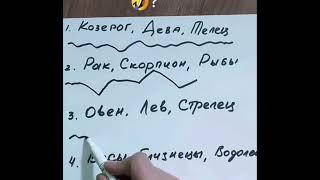 ?
1. Козерог, Дева, Телец
2. Рак, Скорпион, Рыбы
3. Овен, Лев, Стрелец
4. Весы, Близнецы, Водолей